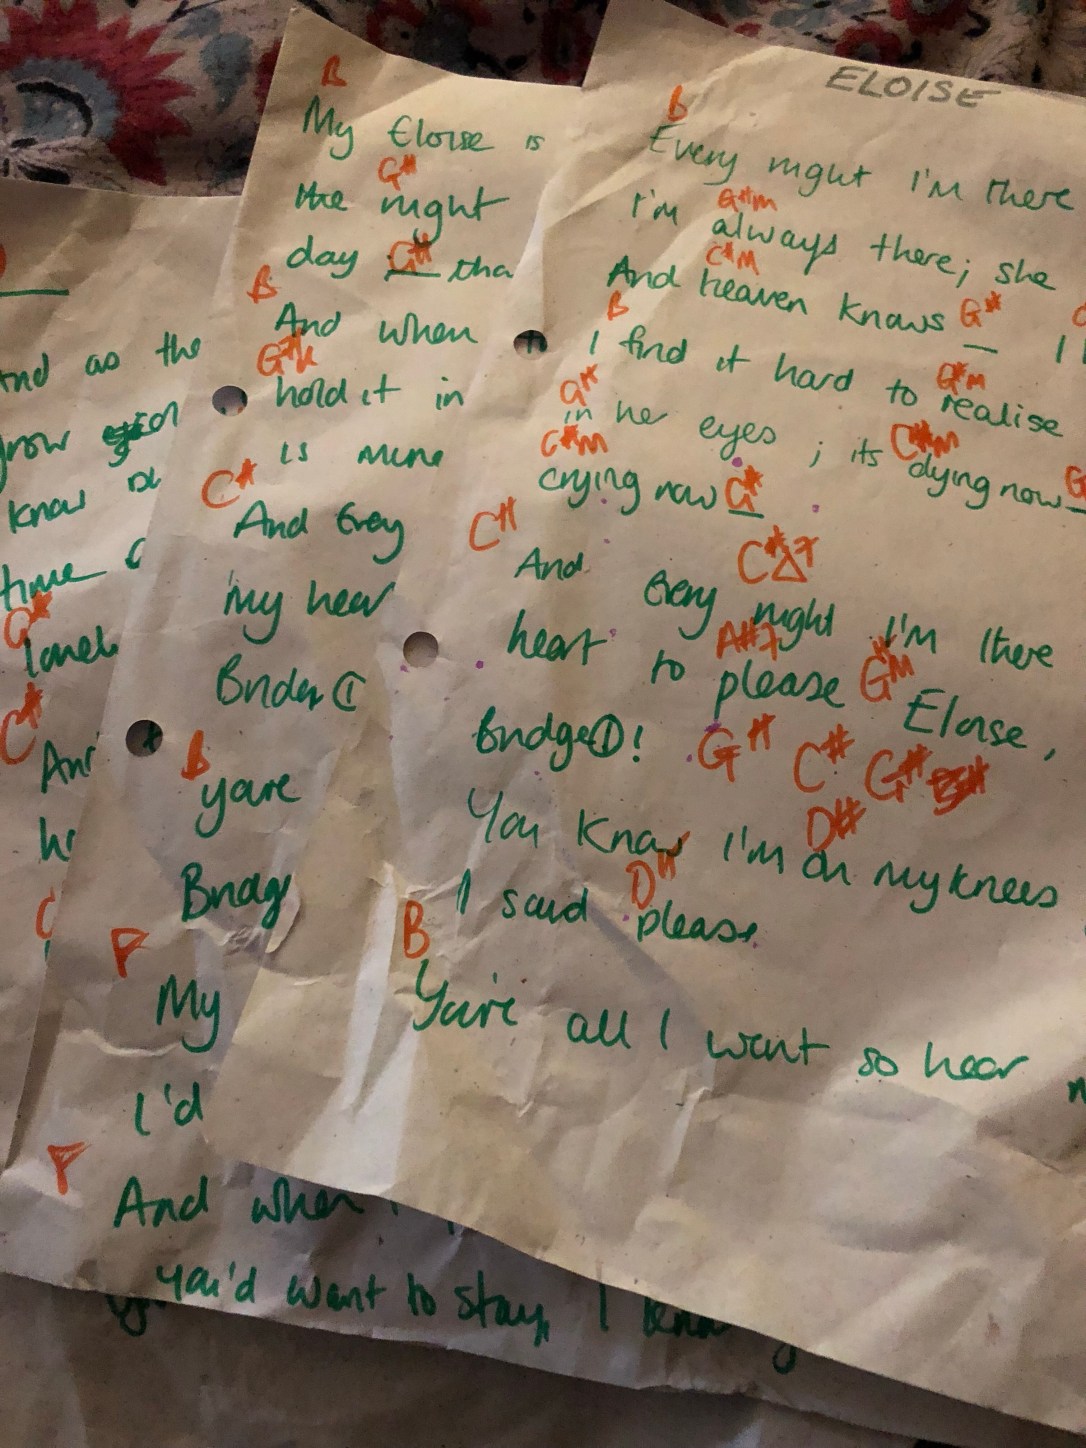 ELOISE
B
Every night I'm there
G#m
I'm always there; she
C#m
And heaven knows G#
B
I find it hard to realise
G#m
G#
in her eyes ; its dying now
C#m C#m
crying now G#
C#
And Every night I'm there
C#Δ7
heart to please Eloise,
A#7 G#m
Bridge ①! G# C# G#
You know I'm on my knees
D#
I said please
D#
B
You're all I want so hear
B
My Eloise is
G#
the night
day G# tha
B
And when
G#
hold it in
is mine
C#
And Every
my hear
Bridge ①
B
youre
Bridg
F
My
I'd
F
And when I
you'd want to stay, I
And as the
know
time
G#
lonel
C#